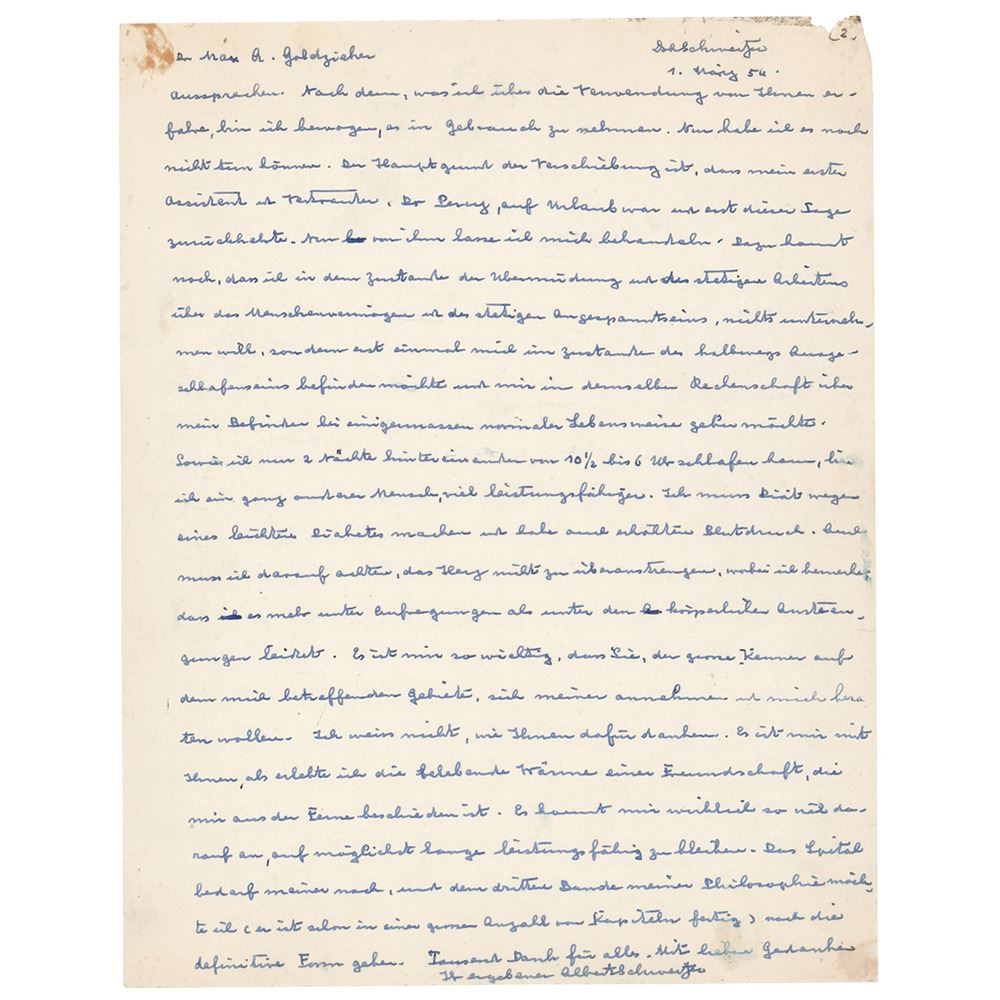 Dr Max A. Goldzieher Dr A Schweitzer (2
1. März 54.
aussprechen. Nach dem, was ich über die Verwendung von Ihnen er-
fahre, bin ich bewogen, es in Gebrauch zu nehmen. Nur habe ich es noch
nicht tun können. Der Hauptgrund der Verschiebung ist, dass mein erster
Assistent u Vertrauter, Dr Percy, auf Urlaub war und erst dieser Tage
zurückkehrte. Nur von ihm lasse ich mich behandeln. Dazu kommt
noch, dass ich in dem Zustande der Übermüdung und des stetigen Arbeitens
über das Menschenvermögen u des stetigen Angespanntseins, nichts unterneh-
men will, sondern erst einmal mich im Zustande des halbwegs Ausge-
schlafenseins befinden möchte und mir in demselben Rechenschaft über
mein Befinden bei einigermassen normaler Lebensweise geben möchte.
Sowie ich nur 2 Nächte hintereinander von 10 1/2 bis 6 Uhr schlafen kann, bin
ich ein ganz anderer Mensch, viel leistungsfähiger. Ich muss Diät wegen
eines leichten Diabetes machen und habe auch erhöhten Blutdruck. Auch
muss ich darauf achten, das Herz nicht zu überanstrengen, wobei ich bemerke,
dass es mehr unter Aufregungen als unter den körperlichen Anstren-
gungen leidet. Es ist mir so wichtig, dass Sie, der grosse Kenner auf
dem mich betreffenden Gebiete, sich meiner annehmen u mich bera
ten wollen. Ich weiss nicht, wie Ihnen dafür danken. Es ist mir mit
Ihnen, als erlebte ich die belebende Wärme einer Freundschaft, die
mir aus der Ferne beschieden ist. Es kommt mir wirklich so viel da-
rauf an, auf möglichst lange leistungsfähig zu bleiben. Das Spital
bedarf meiner noch, und dem dritten Bande meiner Philosophie möch-
te ich (er ist schon in einer grossen Anzahl von Kapiteln fertig) noch die
definitive Form geben. Tausend Dank für alles. Mit lieben Gedanken
Ihr ergebener Albert Schweitzer